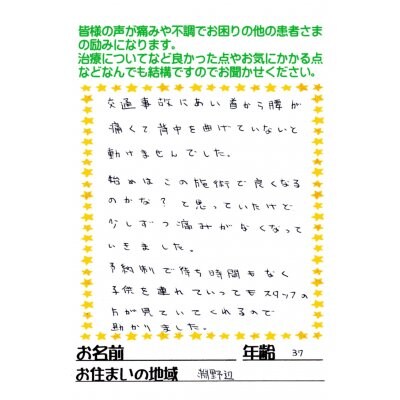 皆様の声が痛みや不調でお困りの他の患者さま
の励みになります。
治療についてなど良かった点やお気にかかる点
などなんでも結構ですのでお聞かせください。
交通事故にあい首から腰が
痛くて背中を曲げていないと
動けませんでした。
始めはこの施術で良くなる
のかな?と思っていたけど
少しずつ痛みがなくなって
いきました。
予約制で待ち時間もなく
子供を連れていってもスタッフの
方が見ていてくれるので
助かりました。
お名前
年齢 37
お住まいの地域 淵野辺